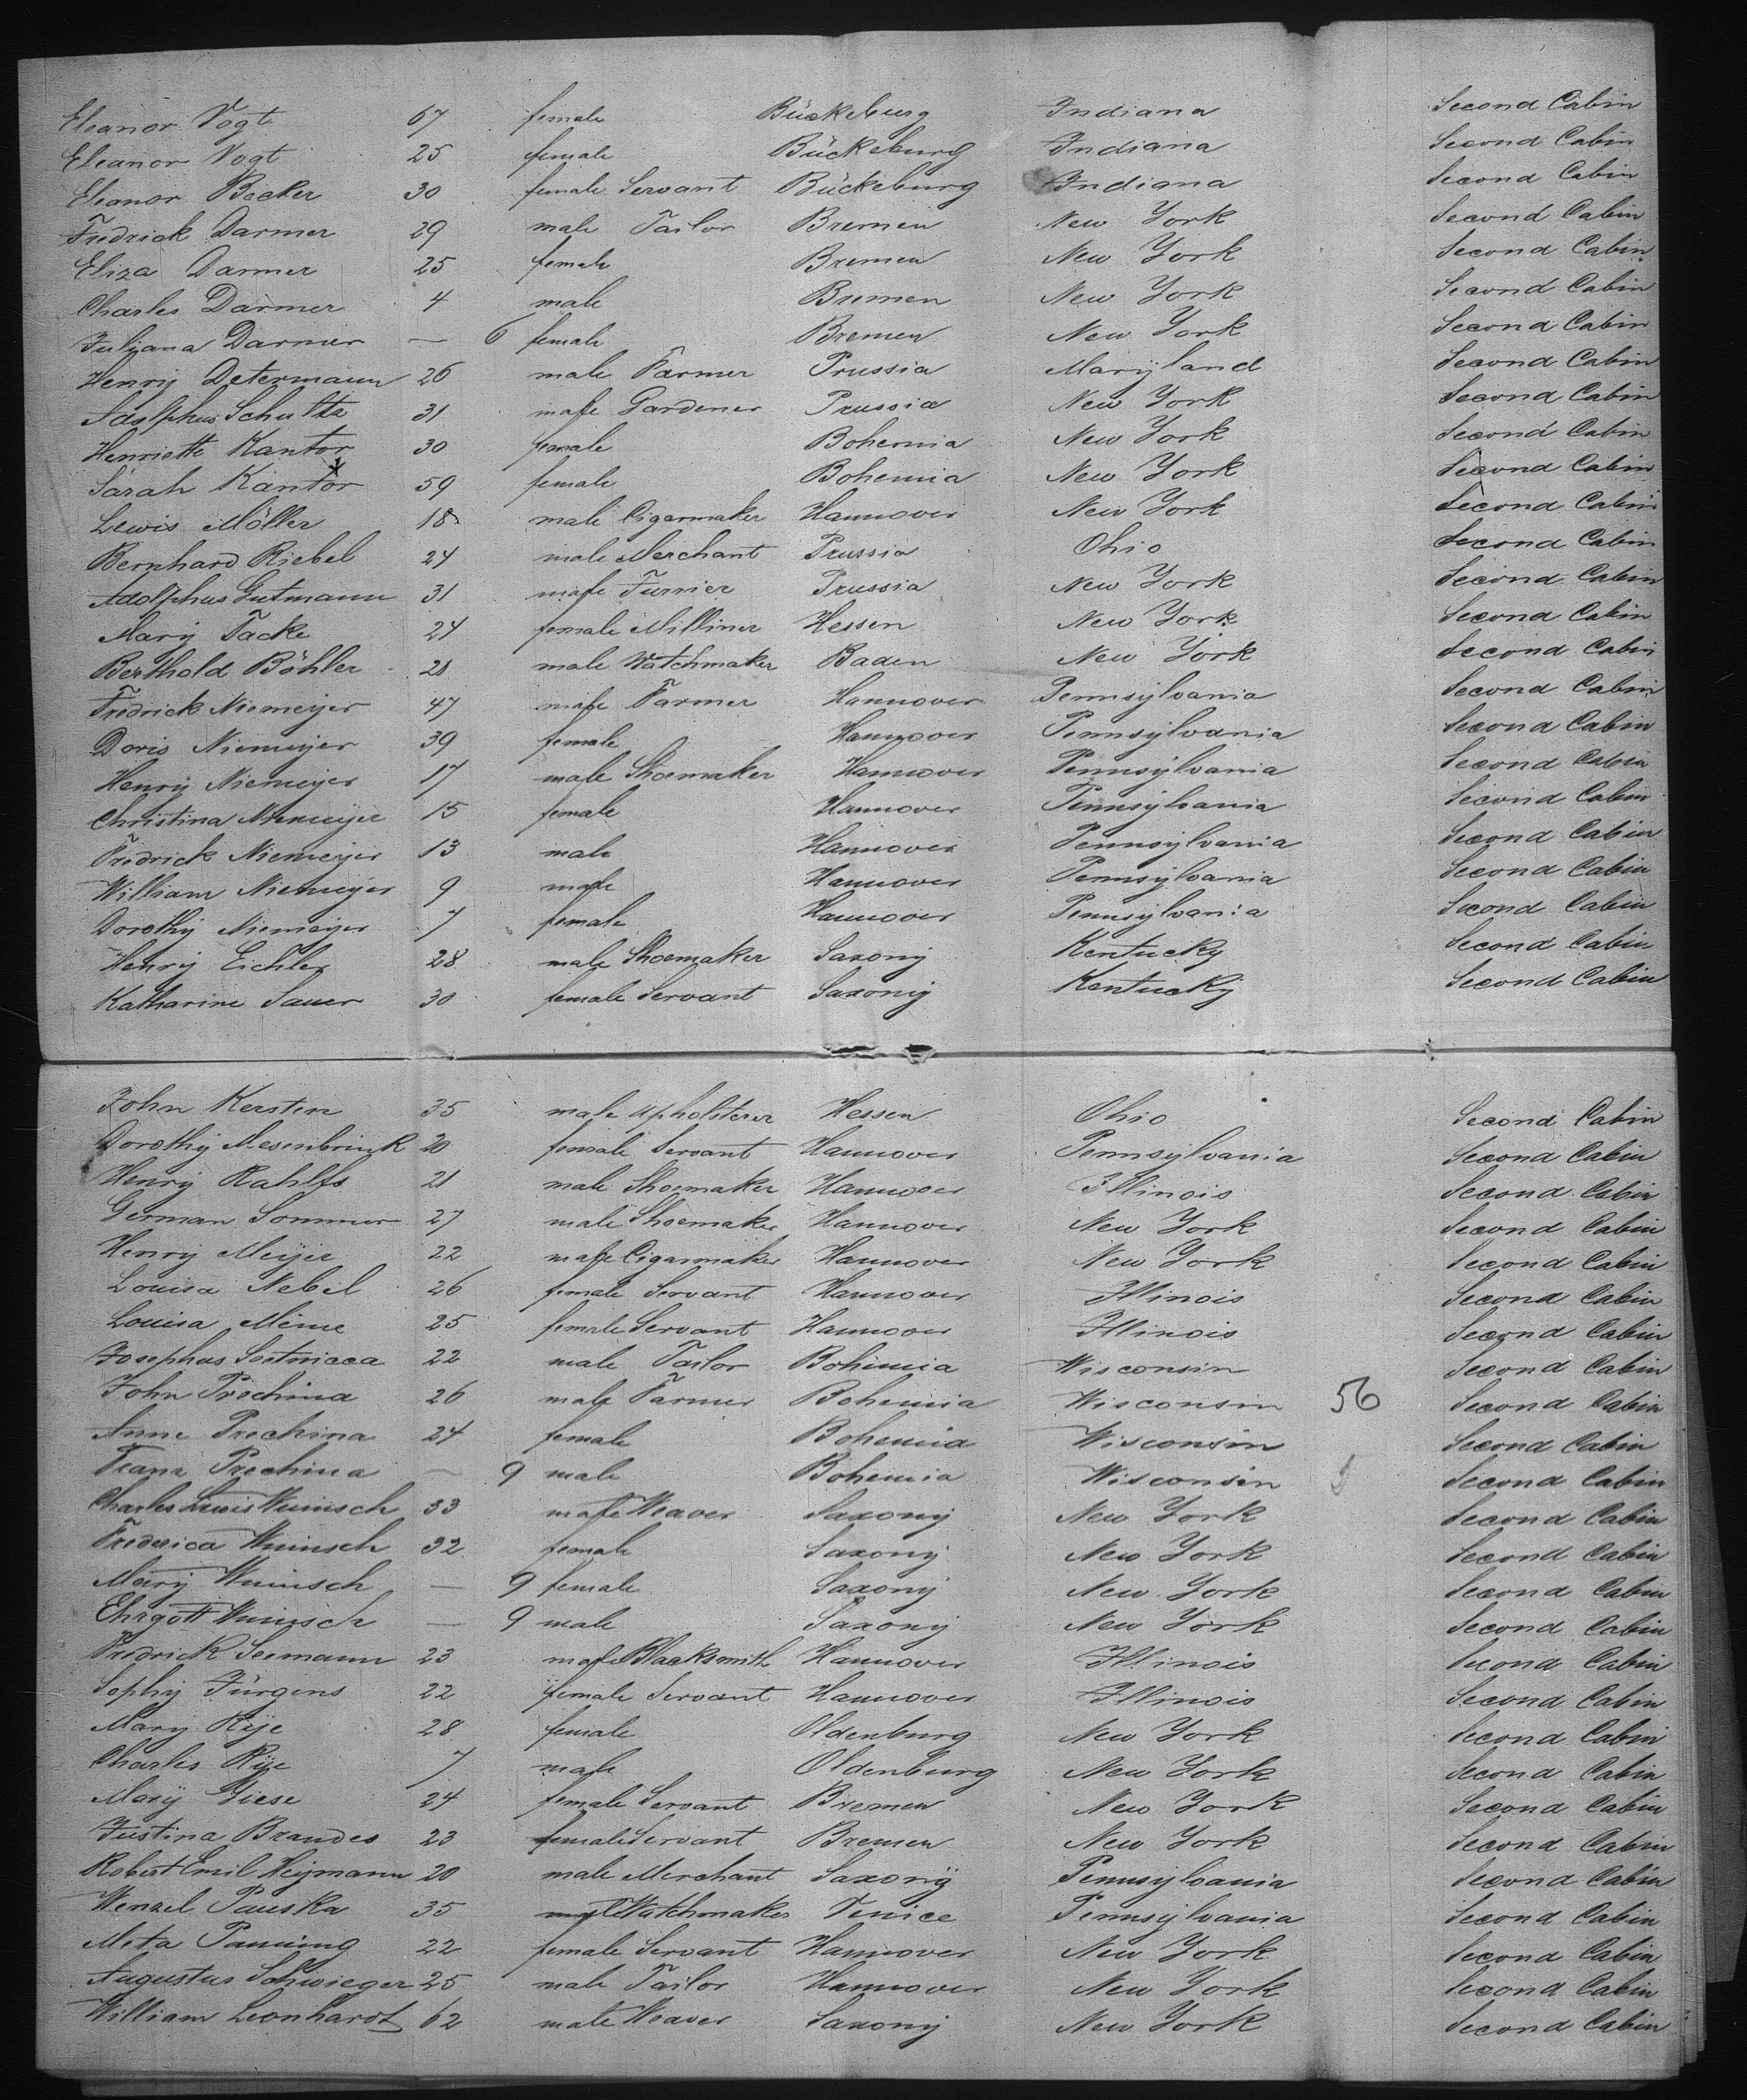 Eleanor Vogt 67 female Bückeburg Indiana Second Cabin
Eleanor Vogt 25 female Bückeburg Indiana Second Cabin
Eleanor Becker 30 female Servant Bückeburg Indiana Second Cabin
Fredrick Darmer 29 male Tailor Bremen New York Second Cabin
Eliza Darmer 25 female Bremen New York Second Cabin
Charles Darmer 4 male Bremen New York Second Cabin
Juliana Darmer — 6 female Bremen New York Second Cabin
Henry Determann 26 male Farmer Prussia Maryland Second Cabin
Schultz 31 male Gardener Prussia New York Second Cabin
Henriette Kantor 30 female Bohemia New York Second Cabin
Sarah Kantor 59 female Bohemia New York Second Cabin
Lewis Möller 18 male Cigarmaker Hannover New York Second Cabin
Bernhard Riebel 24 male Merchant Prussia Ohio Second Cabin
Adolphus Gutmann 31 male Furrier Prussia New York Second Cabin
Mary Tacke 24 female Milliner Hessen New York Second Cabin
Berthold Böhler 21 male Watchmaker Baden New York Second Cabin
Fredrick Niemeyer 47 male Farmer Hannover Pennsylvania Second Cabin
Doris Niemeyer 39 female Hannover Pennsylvania Second Cabin
Henry Niemeyer 17 male Shoemaker Hannover Pennsylvania Second Cabin
Christina Niemeyer 15 female Hannover Pennsylvania Second Cabin
Fredrick Niemeyer 13 male Hannover Pennsylvania Second Cabin
William Niemeyer 9 male Hannover Pennsylvania Second Cabin
Dorothy Niemeyer 7 female Hannover Pennsylvania Second Cabin
Henry Eichler 28 male Shoemaker Saxony Kentucky Second Cabin
Katharine Sauer 30 female Servant Saxony Kentucky Second Cabin
John Kersten 35 male Upholsterer Hessen Ohio Second Cabin
Dorothy Mesenbrink 20 female Servant Hannover Pennsylvania Second Cabin
Henry Rahlfs 21 male Shoemaker Hannover Illinois Second Cabin
German Sommer 27 male Shoemaker Hannover New York Second Cabin
Henry Meyer 22 male Cigarmaker Hannover New York Second Cabin
Louisa Nebel 26 female Servant Hannover Illinois Second Cabin
Louisa Meine 25 female Servant Hannover Illinois Second Cabin
Josephus 22 male Tailor Bohemia Wisconsin Second Cabin
John Prechina 26 male Farmer Bohemia Wisconsin 56 Second Cabin
Anne Prechina 24 female Bohemia Wisconsin Second Cabin
Franz Prechina — 9 male Bohemia Wisconsin Second Cabin
Charles Lewis Wünsch 33 male Weaver Saxony New York Second Cabin
Frederica Wünsch 32 female Saxony New York Second Cabin
Mary Wünsch — 9 female Saxony New York Second Cabin
Ehrgott Wünsch — 9 male Saxony New York Second Cabin
Fredrick Seemann 23 male Blacksmith Hannover Illinois Second Cabin
Sophy Jürgens 22 female Servant Hannover Illinois Second Cabin
Mary Rije 28 female Oldenburg New York Second Cabin
Charles Rije 7 male Oldenburg New York Second Cabin
Mary Giese 24 female Servant Bremen New York Second Cabin
Justina Brandes 23 female Servant Bremen New York Second Cabin
Robert Emil Heymann 20 male Merchant Saxony Pennsylvania Second Cabin
Wenzel Pauska 35 male Watchmaker Venice Pennsylvania Second Cabin
Meta Panning 22 female Servant Hannover New York Second Cabin
Augustus Schwieger 25 male Tailor Hannover New York Second Cabin
William Leonhardt 62 male Weaver Saxony New York Second Cabin